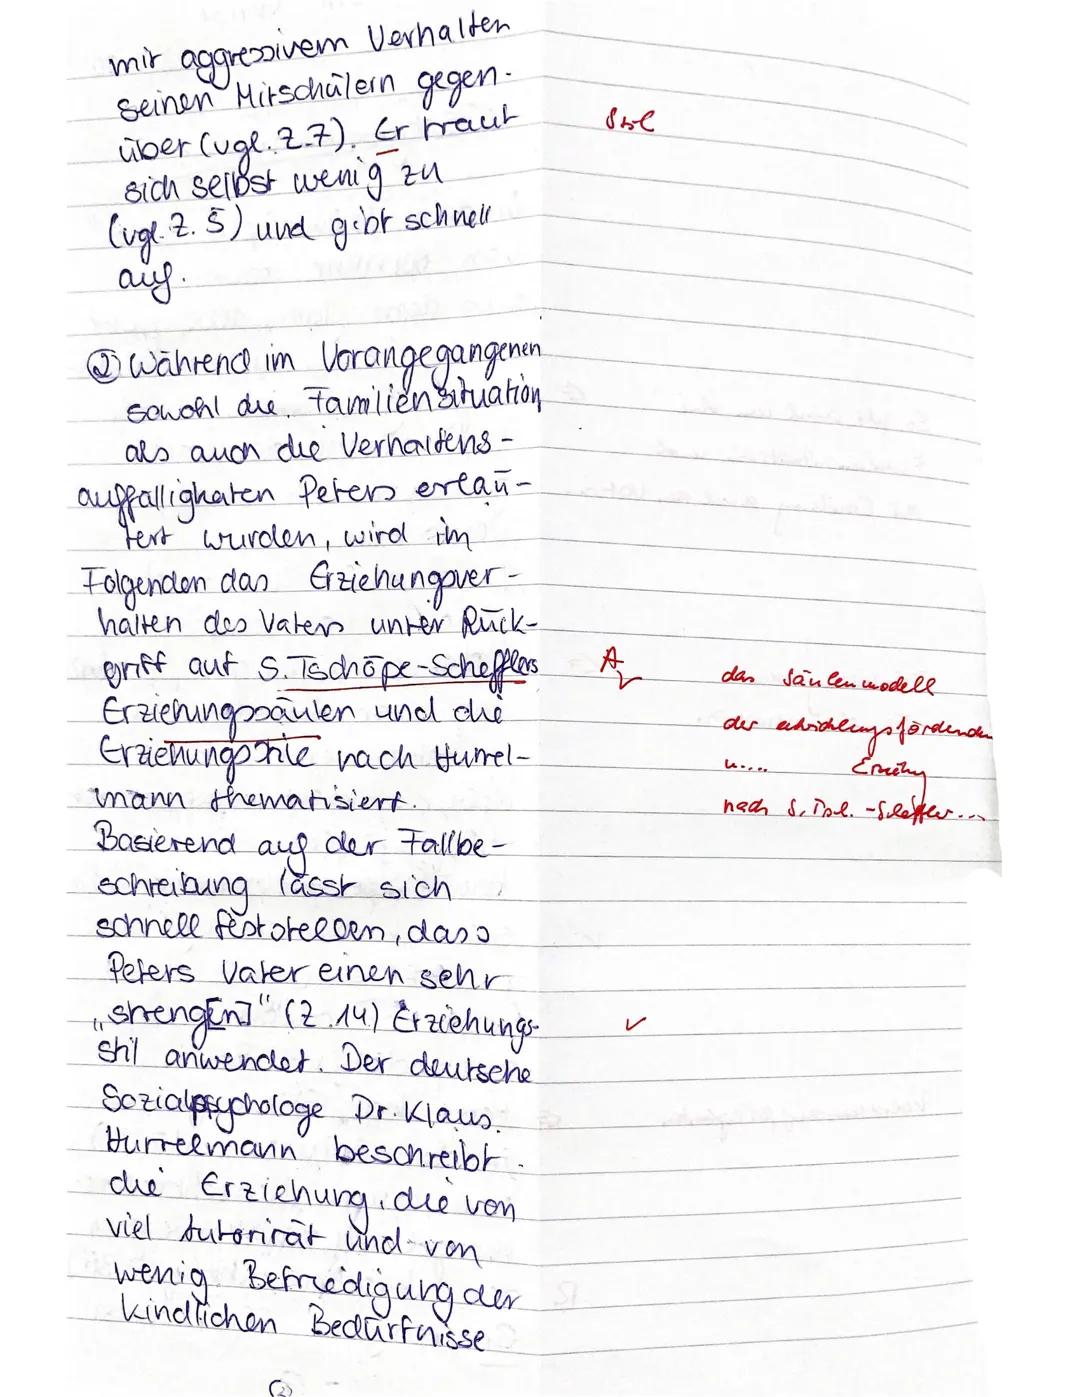 mit aggressivem Verhalten
seinen Mitschülern gegen-
über (vgl. Z.7). Er traut
sich selbst wenig zu
(vgl. Z. 5) und gibt schnell
auf.
② Während im Vorangegangenen
sowohl die Familiensituation
als auch die Verhaltens-
auffälligkeiten Peters erläu-
tert wurden, wird im
Folgenden das Erziehungsver-
halten des Vaters unter Rück-
griff auf S. Tschöpe-Schefflers
Erziehungssäulen und die
Erziehungsstile nach Hurrel-
mann thematisiert.
Basierend auf der Fallbe-
schreibung lässt sich
schnell feststellen, dass
Peters Vater einen sehr
„streng[en]" (Z.14) Erziehungs-
stil anwendet. Der deutsche
Sozialpsychologe Dr. Klaus
Hurrelmann beschreibt
die Erziehung, die von
viel Autorität und von
wenig Befriedigung der
kindlichen Bedürfnisse
(2)
Stil
A
das Säulenmodell
der entwicklungsfördernden
u.... Erziehg
nach S. Tsch. -Scheffler...
✓